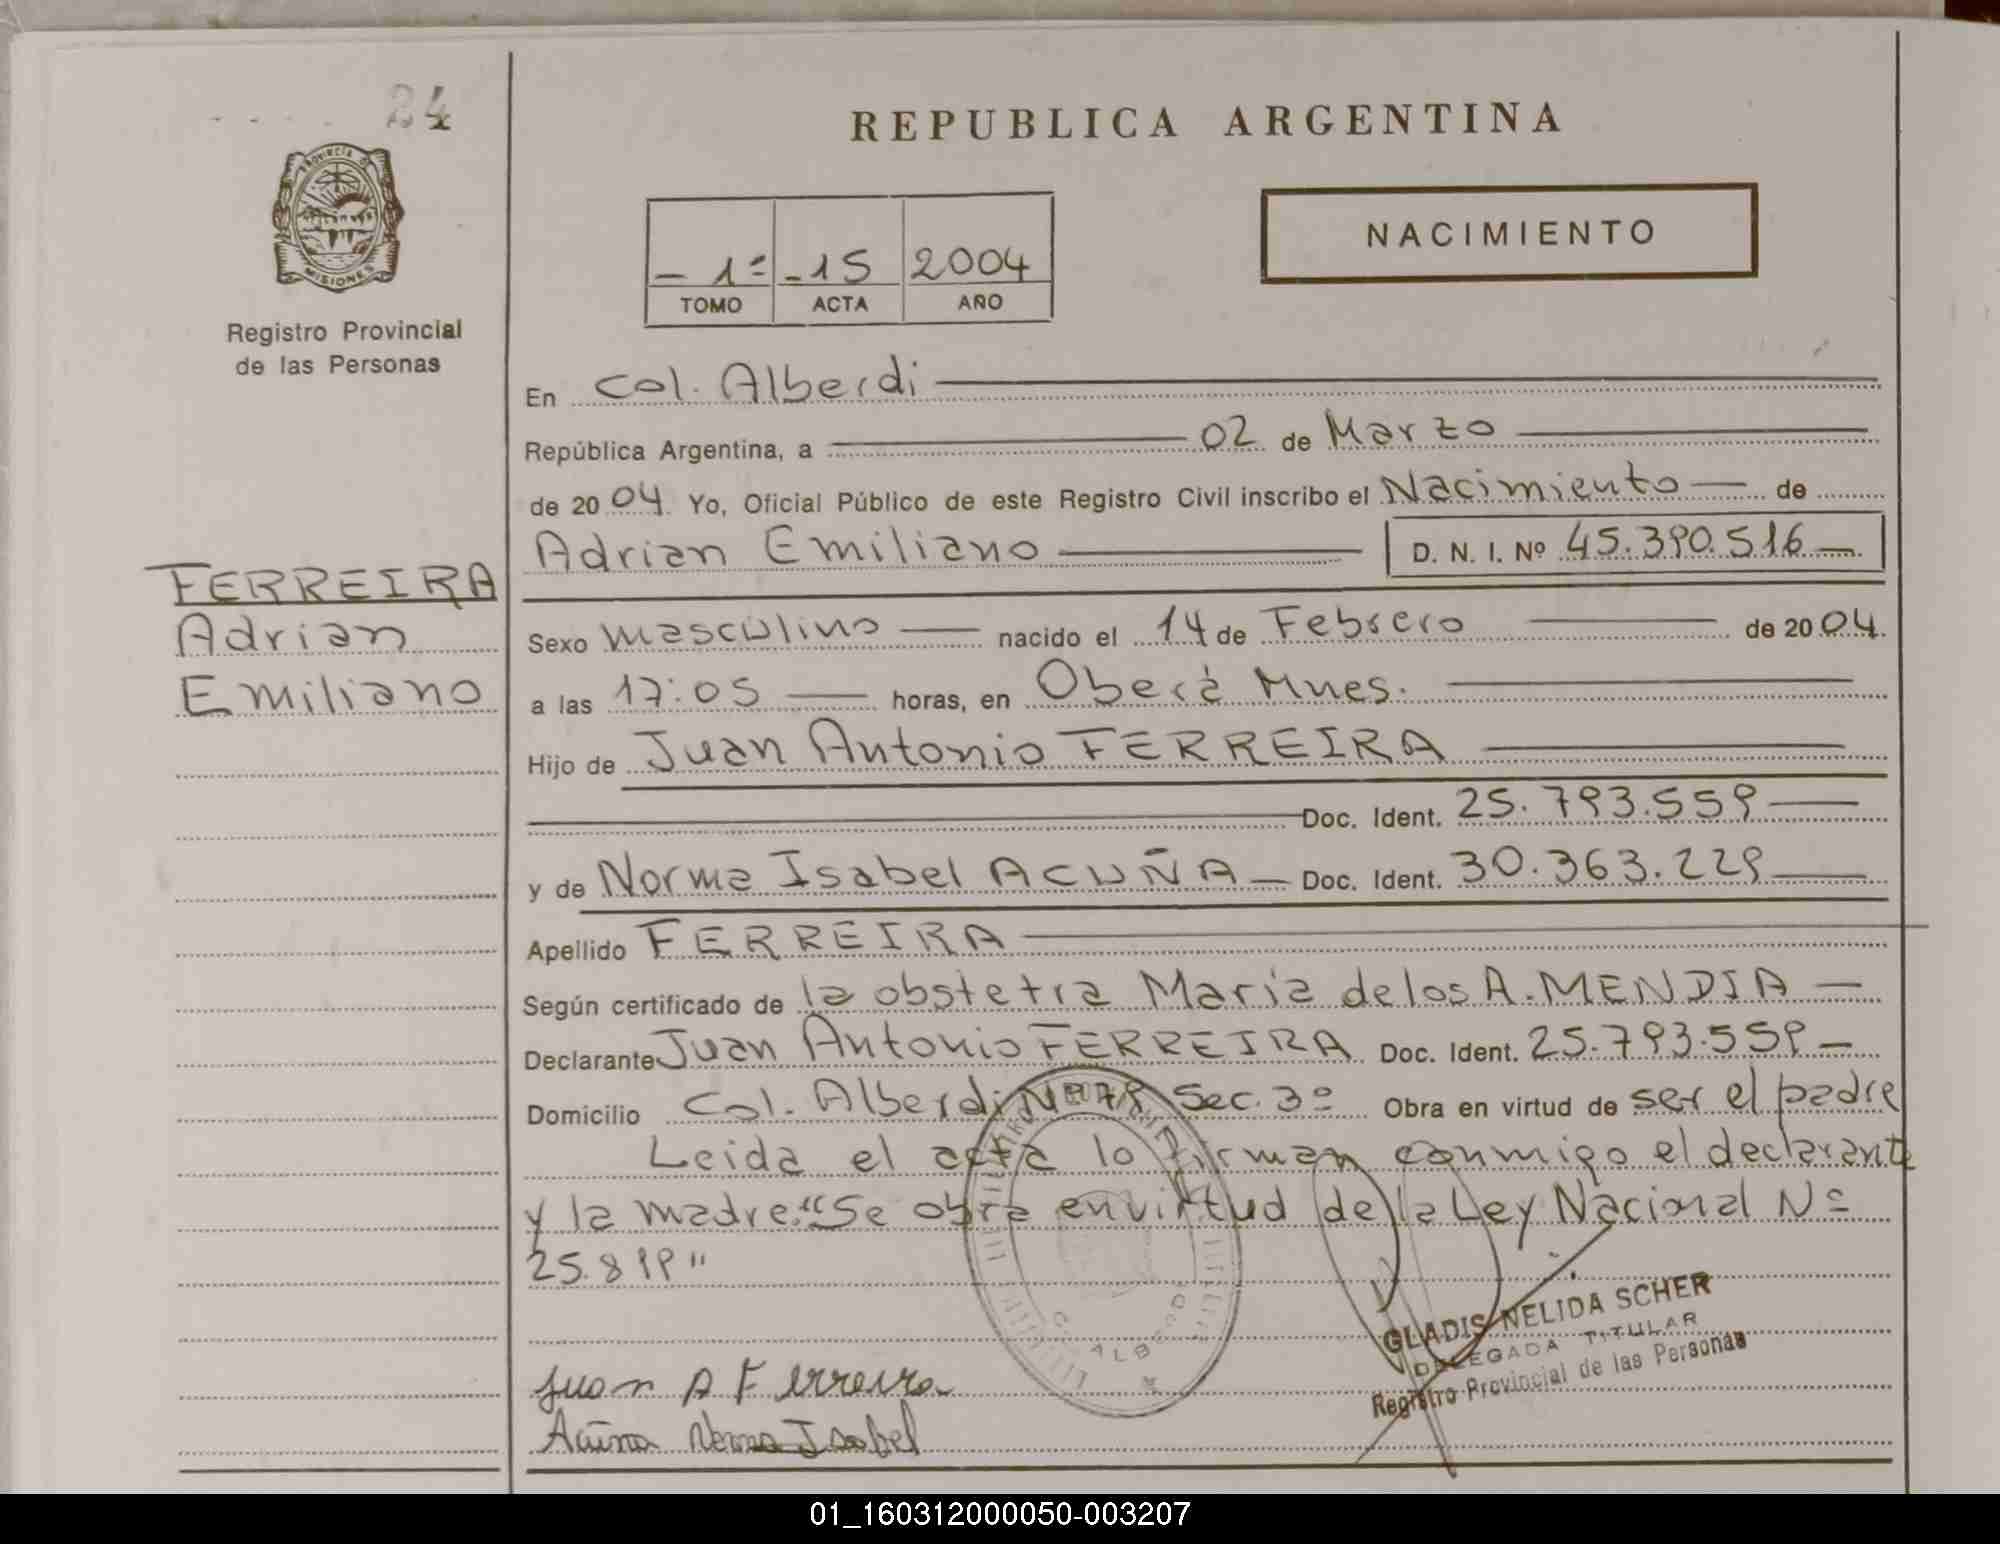 24
PROVINCIA DE
MISIONES
Registro Provincial
de las Personas
FERREIRA
Adrian
Emiliano
REPUBLICA ARGENTINA
- 1º - 15 2004
TOMO ACTA AÑO
NACIMIENTO
En Col. Alberdi
República Argentina, a 02 de Marzo
de 20 04 Yo, Oficial Público de este Registro Civil inscribo el Nacimiento de
Adrian Emiliano D. N. I. Nº 45.390.516
Sexo masculino nacido el 14 de Febrero de 20 04
a las 17:05 horas, en Oberá Mnes.
Hijo de Juan Antonio FERREIRA
Doc. Ident. 25.793.559
y de Norma Isabel ACUÑA Doc. Ident. 30.363.229
Apellido FERREIRA
Según certificado de la obstetra Maria de los A. MENDIA
Declarante Juan Antonio FERREIRA Doc. Ident. 25.793.559
Domicilio Col. Alberdi Sec. 3º Obra en virtud de ser el padre
Leida el acta lo firman conmigo el declarante
y la madre. "Se obra en virtud de la Ley Nacional Nº
25.819"
GLADIS NELIDA SCHER
DELEGADA TITULAR
Registro Provincial de las Personas
Juan A Ferreira
Acuña Norma Isabel
01_160312000050-003207